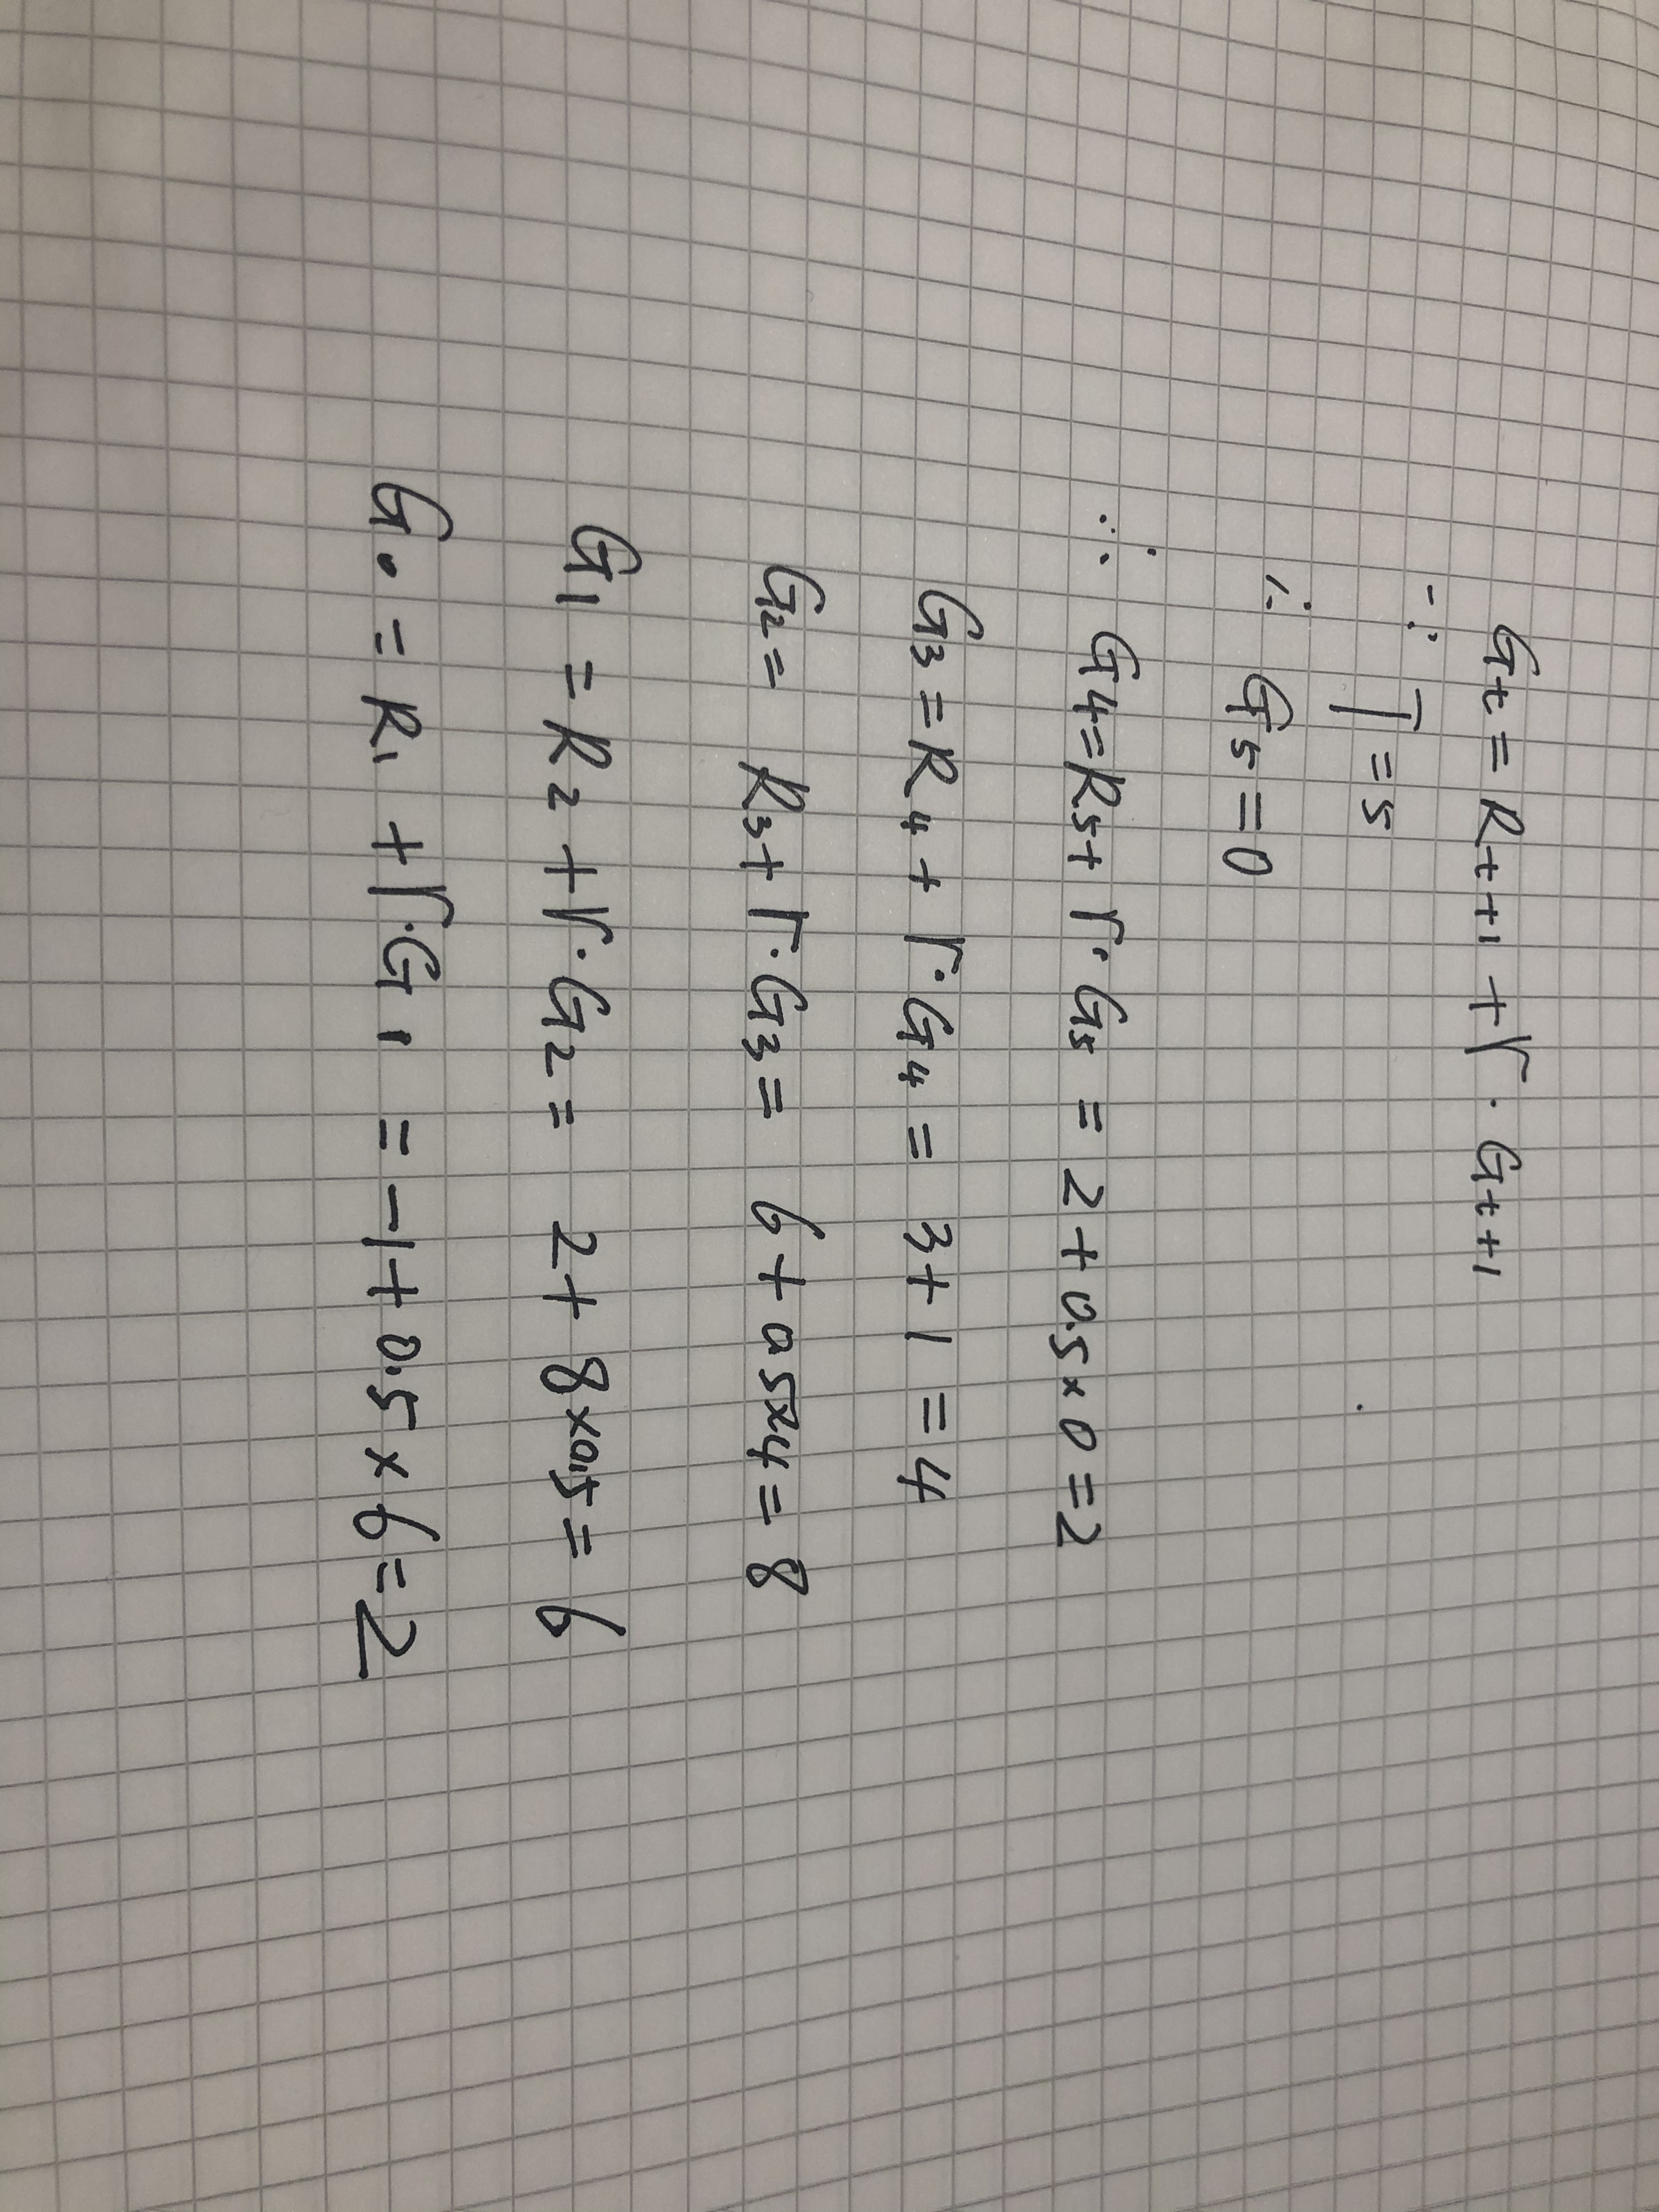 Gt = Rt+1 + r · Gt+1
∵ T = 5
∴ G5 = 0
∴ G4 = R5 + r · G5 = 2 + 0.5 × 0 = 2
G3 = R4 + r · G4 = 3 + 1 = 4
G2 = R3 + r · G3 = 6 + 0.5×4 = 8
G1 = R2 + r · G2 = 2 + 8×0.5 = 6
G0 = R1 + r · G1 = -1 + 0.5 × 6 = 2